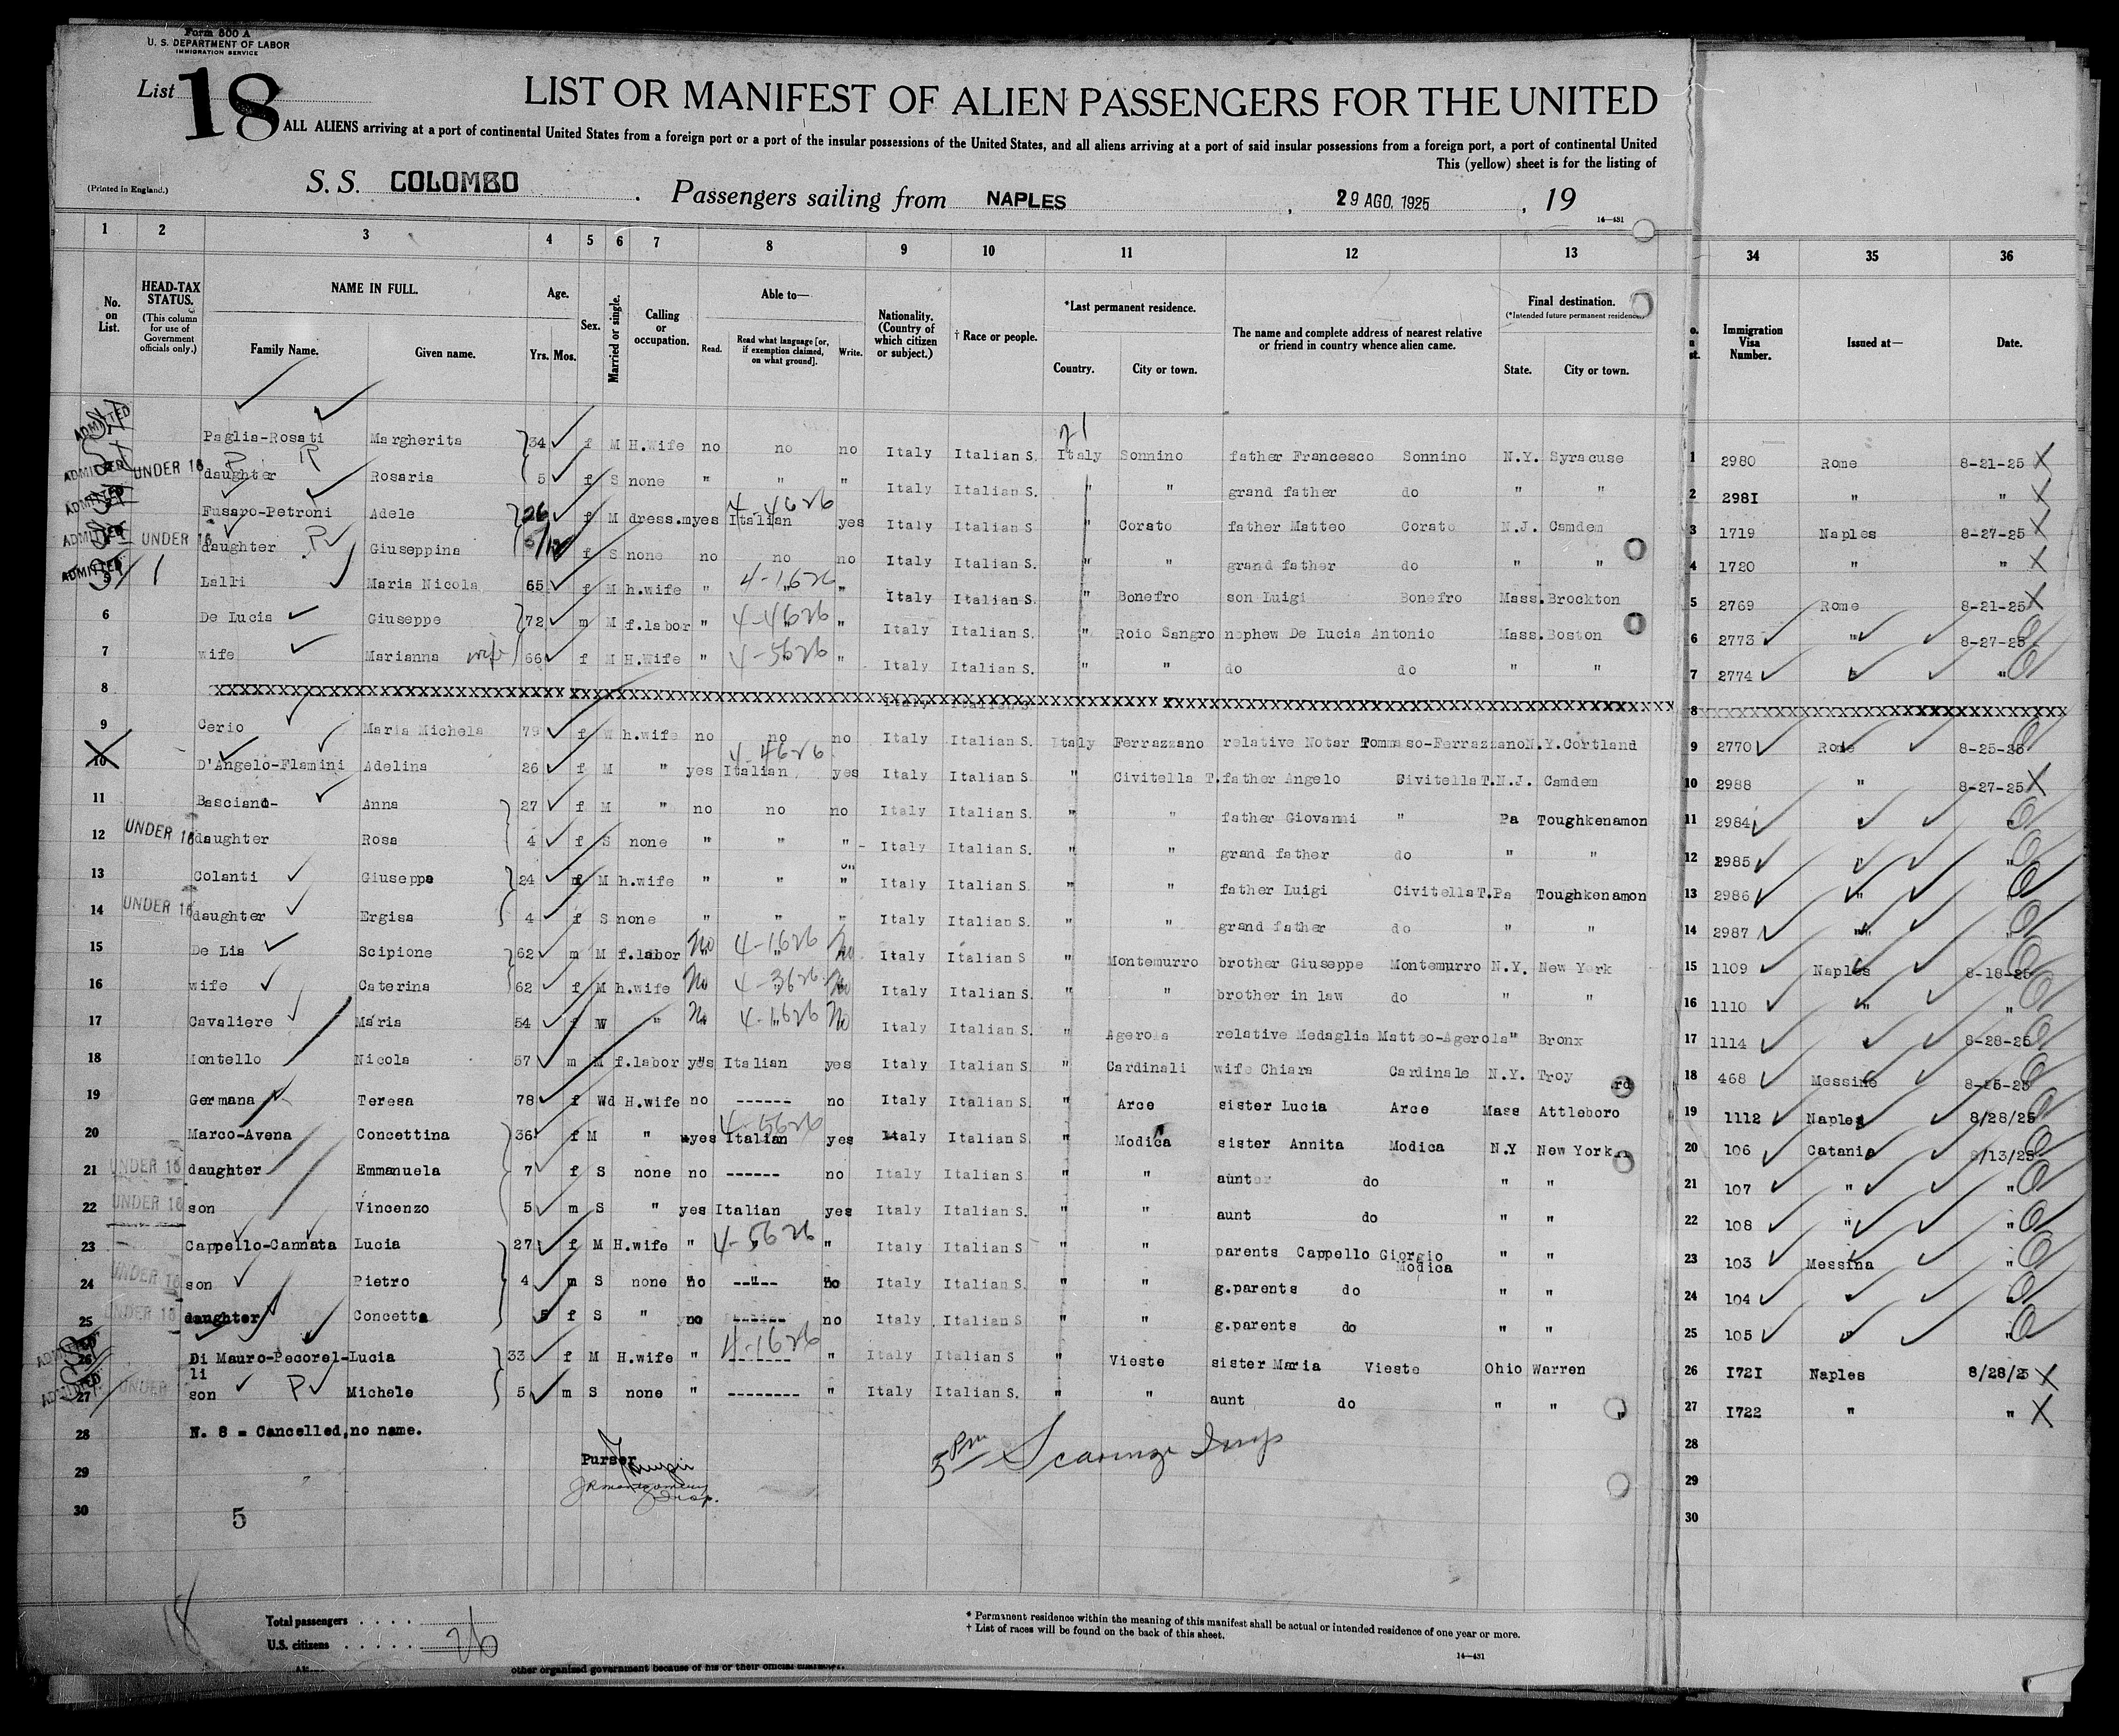 Form 600 A
U. S. DEPARTMENT OF LABOR
IMMIGRATION SERVICE
List 18
LIST OR MANIFEST OF ALIEN PASSENGERS FOR THE UNITED
ALL ALIENS arriving at a port of continental United States from a foreign port or a port of the insular possessions of the United States, and all aliens arriving at a port of said insular possessions from a foreign port, a port of continental United
This (yellow) sheet is for the listing of
(Printed in England.)
S. S. COLOMBO . Passengers sailing from NAPLES , 29 AGO. 1925 , 19
14—431
1 2 3 4 5 6 7 8 9 10 11 12 13 34 35 36
No. on List.
HEAD-TAX STATUS. (This column for use of Government officials only.)
NAME IN FULL. Family Name. Given name.
Age. Yrs. Mos.
Sex.
Married or single.
Calling or occupation.
Able to— Read. Read what language [or, if exemption claimed, on what ground]. Write.
Nationality. (Country of which citizen or subject.)
† Race or people.
*Last permanent residence. Country. City or town.
The name and complete address of nearest relative or friend in country whence alien came.
Final destination. (*Intended future permanent residence.) State. City or town.
Immigration Visa Number.
Issued at—
Date.
21
ADMITTED Paglia-Rosati Margherita 34 f M H.Wife no no no Italy Italian S. Italy Sonnino father Francesco Sonnino N.Y. Syracuse 1 2980 Rome 8-21-25 X
ADMITTED UNDER 16 daughter Rosaria 5 f S none " " " Italy Italian S. " " grand father do " " 2 2981 " " X
ADMITTED Fusaro-Petroni Adele 26 f M dress.m yes Italian 4-4626 yes Italy Italian S " Corato father Matteo Corato N.J. Camdem 3 1719 Naples 8-27-25 X
ADMITTED UNDER 16 daughter Giuseppina f S none no no no Italy Italian S. " " grand father do " " 4 1720 " " X
ADMITTED Lalli Maria Nicola 65 f M h.wife " 4-1626 " Italy Italian S. " Bonefro son Luigi Bonefro Mass. Brockton 5 2769 Rome 8-21-25 X
6 De Lucia Giuseppe 72 m M f.labor " 4-4626 " Italy Italian S. " Roio Sangro nephew De Lucia Antonio Mass. Boston 6 2773 " 8-27-25
7 wife Marianna wife 66 f M H.Wife " 4-5626 " Italy Italian S. " " do do " " 7 2774 " "
8
9 Cerio Maria Michela 79 f W h.wife no no no Italy Italian S. Italy Ferrazzano relative Notar Tommaso-Ferrazzano N.Y. Cortland 9 2770 Rome 8-25-25
10 D'Angelo-Flamini Adelina 26 f M " yes Italian 4-4626 yes Italy Italian S. " Civitella T. father Angelo Civitella T. N.J. Camdem 10 2988 " 8-27-25 X
11 Basciano- Anna 27 f M " no no no Italy Italian S. " " father Giovanni " Pa Toughkenamon 11 2984 " "
12 UNDER 16 daughter Rosa 4 f S none " " " Italy Italian S. " " grand father do " " 12 2985 " "
13 Colanti Giuseppe 24 f M h.wife " " " Italy Italian S. " " father Luigi Civitella T. Pa Toughkenamon 13 2986 " "
14 UNDER 16 daughter Ergisa 4 f S none " " " Italy Italian S. " " grand father do " " 14 2987 " "
15 De Lia Scipione 62 m M f.labor No 4-1626 No Italy Italian S " Montemurro brother Giuseppe Montemurro N.Y. New York 15 1109 Naples 8-18-25
16 wife Caterina 62 f M h.wife No 4-3626 No Italy Italian S. " " brother in law do " " 16 1110 " "
17 Cavaliere Maria 54 f W " No 4-1626 No Italy Italian S. " Agerola relative Medaglia Matteo-Agerola " Bronx 17 1114 " 8-28-25
18 Montello Nicola 57 m M f.labor yes Italian yes Italy Italian S. " Cardinali wife Chiara Cardinale N.Y. Troy 18 468 Messina 8-25-25
19 Germana Teresa 78 f Wd H.wife no ------ no Italy Italian S. " Arce sister Lucia Arce Mass Attleboro 19 1112 Naples 8/28/25
20 Marco-Avena Concettina 36 f M " yes Italian 4-5626 yes Italy Italian S. " Modica sister Annita Modica N.Y New York 20 106 Catania 8/13/25
21 UNDER 16 daughter Emmanuela 7 f S none no ------ no Italy Italian S. " " aunt do " " 21 107 " "
22 UNDER 16 son Vincenzo 5 m S " yes Italian yes Italy Italian S. " " aunt do " " 22 108 " "
23 Cappello-Cannata Lucia 27 f M H.wife " 4-5626 " Italy Italian S " " parents Cappello Giorgio Modica " " 23 103 Messina "
24 UNDER 16 son Pietro 4 m S none no ------ no Italy Italian S. " " g.parents do " " 24 104 " "
25 UNDER 16 daughter Concetta 5 f S " no ------ no Italy Italian S " " g.parents do " " 25 105 " "
26 ADMITTED Di Mauro-Pecorel-li Lucia 33 f M H.wife " 4-1626 " Italy Italian S " Vieste sister Maria Vieste Ohio Warren 26 1721 Naples 8/28/25 X
27 ADMITTED UNDER son Michele 5 m S none " -------- " Italy Italian S. " " aunt do " " 27 1722 " " X
28 N. 8 = Cancelled, no name. 28
29 Purser 29
30 5 30
18
Total passengers . . . .
U.S. citizens . . . . . 26
* Permanent residence within the meaning of this manifest shall be actual or intended residence of one year or more.
† List of races will be found on the back of this sheet.
14—431
other organized government because of his or their official character.